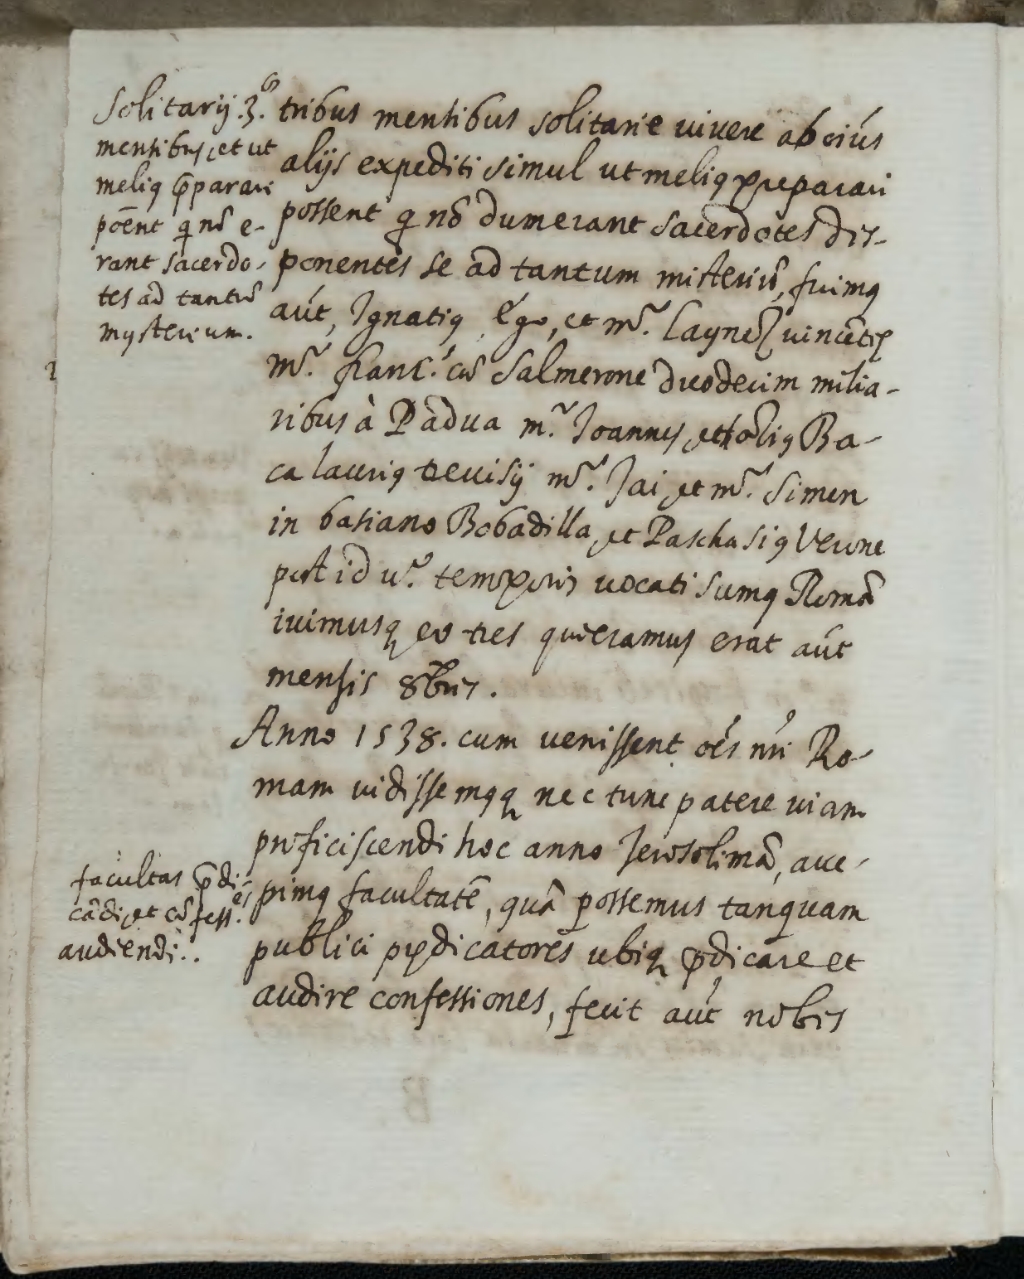 Solitarij .3.
mensibus, et ut
meliꝰ p̄parari
poẽnt qi nõ e-
rant sacerdo-
tes ad tantũ
mysterium.
tribus mensibus solitarie uiuere ab oiũs
alijs expediti simul ut meliꝰ preparari
possent qi nõ dum erant sacerdotes dis-
ponentes se ad tantum misteriũ, fuimꝰ
aũt, Ignatiꝰ Ego, et mr. Laynez uincetiꝫ
mr. franc. cũ Salmerone duodecim milia-
ribus à Padua mr. Joannes, et Ba-
calauriꝰ treuisij mr. Jai et mr. Simon
in basiano Bobadilla, et Paschasiꝰ Verone
post id ur. temporis uocati sumꝰ Romã
iuimusqꝫ eo tres qui eramus erat aũt
mensis 8bris.
Anno 1538. cum uenissent oẽs nri Ro-
mam uidissemꝰqꝫ nec tunc patere uiam
proficiscendi hoc anno Jerosolimã, acce-
pimꝰ facultatẽ, quã possemus tanquam
publici predicatores ubiqꝫ p̄dicare et
audire confessiones, fecit aũt nobis
facultas p̄di-
cãdi, et cõfess.es
audiendi..